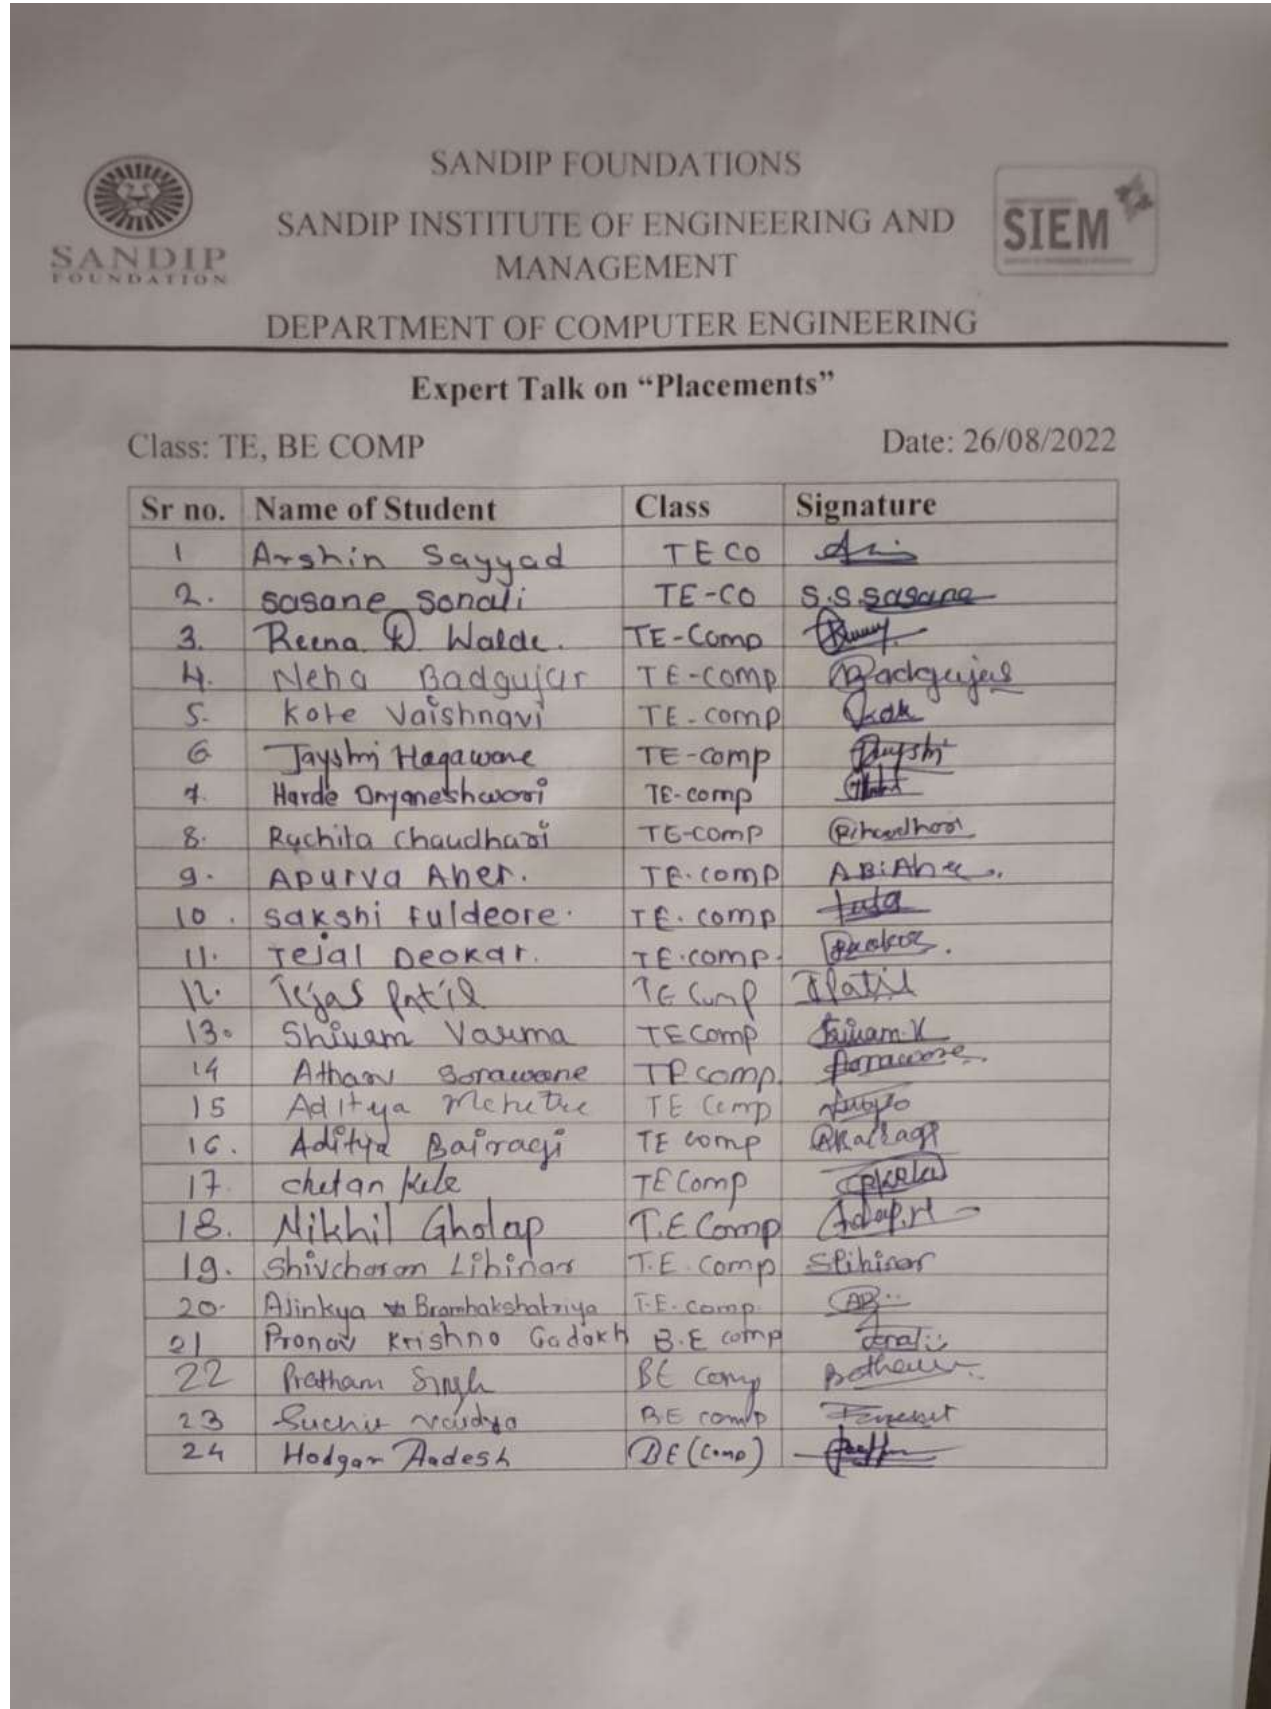 SANDIP FOUNDATIONS
SANDIP
FOUNDATION
SANDIP INSTITUTE OF ENGINEERING AND
MANAGEMENT
SIEM
DEPARTMENT OF COMPUTER ENGINEERING
Expert Talk on “Placements”
Class: TE, BE COMP Date: 26/08/2022
Sr no. Name of Student Class Signature
1 Arshin Sayyad TECO
2. Sasane Sonali TE-CO S.S.Sasane
3. Reena D. Walde. TE-Comp
4. Neha Badgujar TE-comp Badgujar
5. Kote Vaishnavi TE-comp
6 Jayshri Hagawane TE-comp Jayshri
7. Harde Dnyaneshwari TE-comp
8. Ruchita Chaudhari TE-comp
9. Apurva Aher. TE.comp
10. Sakshi Fuldeore. TE. comp
11. Tejal Deokar. TE.comp.
12. Tejas Patil TE Comp TPatil
13. Shivam Varma TE Comp Shivam.V
14 Atharv Sonawane TE comp
15 Aditya TE Comp
16. Aditya Bairagi TE comp
17. chetan Kele TE Comp
18. Nikhil Gholap T.E Comp
19. Shivcharan Lihinar T.E. Comp SLihinar
20. Ajinkya Bramhakshatriya T.E. comp.
21 Pranav Krishna Gadakh B.E comp
22 Pratham Singh BE Comp
23 Suchit Vaidya BE comp
24 Hodgar Aadesh BE (Comp)